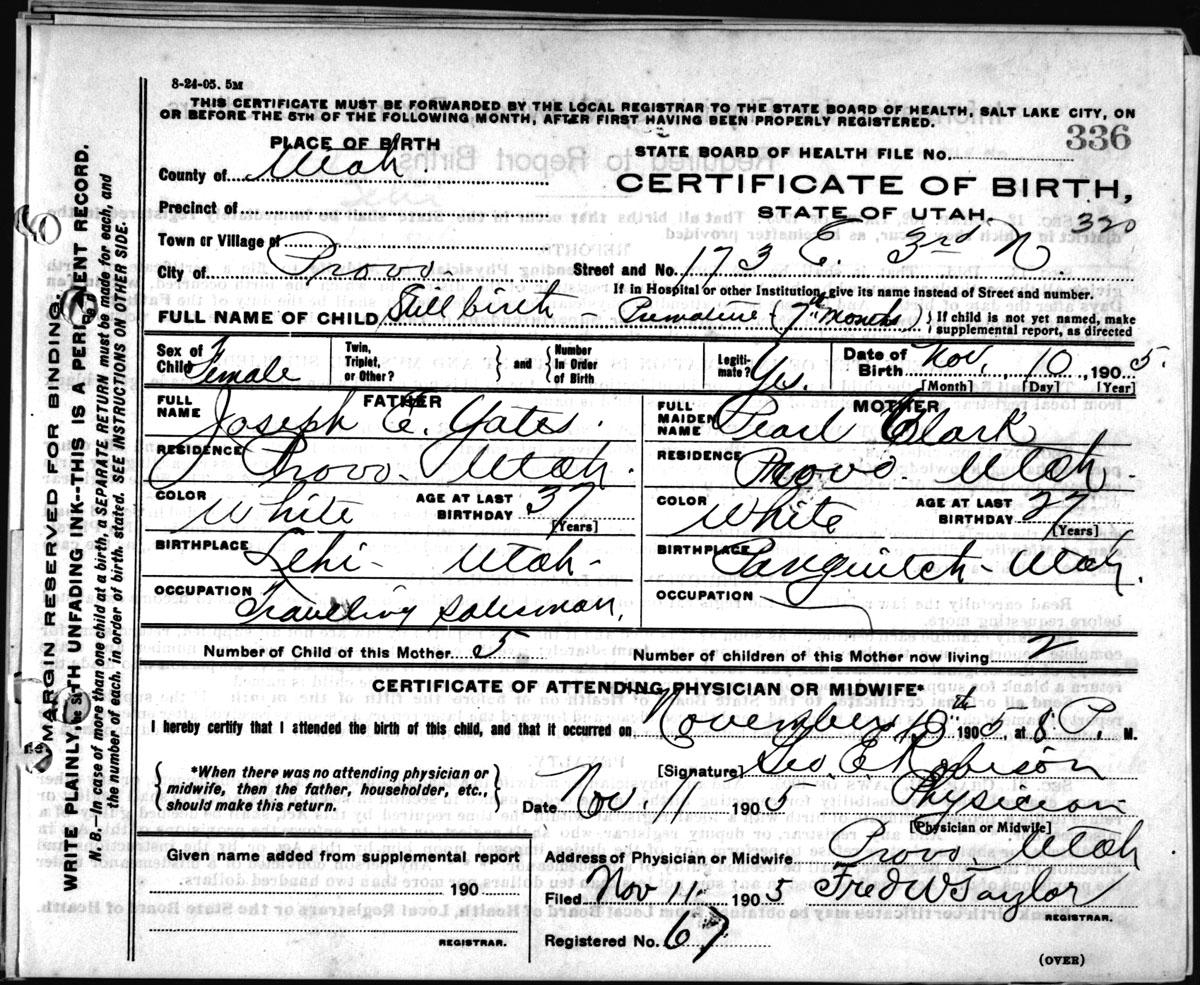 8-24-05. 5M
THIS CERTIFICATE MUST BE FORWARDED BY THE LOCAL REGISTRAR TO THE STATE BOARD OF HEALTH, SALT LAKE CITY, ON
OR BEFORE THE 5TH OF THE FOLLOWING MONTH, AFTER FIRST HAVING BEEN PROPERLY REGISTERED.
PLACE OF BIRTH
STATE BOARD OF HEALTH FILE No. 336
County of Utah.
CERTIFICATE OF BIRTH,
Precinct of
STATE OF UTAH. 320
Town or Village of
City of Provo. Street and No. 173 E. 3rd N.
If in Hospital or other Institution, give its name instead of Street and number.
FULL NAME OF CHILD Still birth - Premature (7th months) } If child is not yet named, make
supplemental report, as directed
Sex of Child Female Twin, Triplet, or Other? } and { Number In Order of Birth Legiti-mate? Yes. Date of Birth Nov. 10, 1905.
[Month] [Day] [Year]
FATHER
FULL NAME Joseph E. Yates.
RESIDENCE Provo- Utah.
COLOR White AGE AT LAST BIRTHDAY 37 [Years]
BIRTHPLACE Lehi- Utah-
OCCUPATION Travelling Salesman.
MOTHER
FULL MAIDEN NAME Pearl Clark
RESIDENCE Provo. Utah.
COLOR White AGE AT LAST BIRTHDAY 27 [Years]
BIRTHPLACE Panguitch- Utah.
OCCUPATION
Number of Child of this Mother 5 Number of children of this Mother now living 2
CERTIFICATE OF ATTENDING PHYSICIAN OR MIDWIFE*
I hereby certify that I attended the birth of this child, and that it occurred on November 10th 1905, at 8 P. M.
{ *When there was no attending physician or
midwife, then the father, householder, etc.,
should make this return. }
[Signature] Geo. E. Robison
Date Nov 11 1905 Physician
[Physician or Midwife]
Given name added from supplemental report
190
REGISTRAR.
Address of Physician or Midwife Provo- Utah
Filed Nov 11. 1905 Fred W Taylor
REGISTRAR.
Registered No. 67
(OVER)
MARGIN RESERVED FOR BINDING
WRITE PLAINLY, WITH UNFADING INK--THIS IS A PERMANENT RECORD.
N. B. In case of more than one child at a birth, a SEPARATE RETURN must be made for each, and
the number of each, in order of birth, stated. SEE INSTRUCTIONS ON OTHER SIDE.